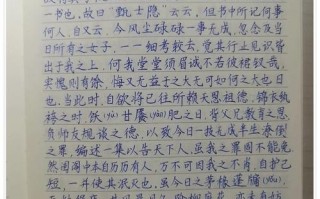 一书也，故曰“甄士隐”云云，但书中所记何事
何人，自又云，今风尘碌碌一事无成，忽念及当
日所有之女子，一一细考较去，觉其行止见识皆
出于我之上，何我堂堂须眉诚不若彼裙钗哉，
实愧则有余，悔又无益之大无可如何之日也
当此时，自欲将已往所赖天恩祖德，锦衣纨
袴之时，饫甘餍肥之日，背父兄教育之恩
负师友规谈之德，以致今日一技无成半生潦倒
之罪，编述一集以告天下人，虽我之罪固不能免
然闺阁中本自历历有人，万不可因我之不肖，自护己
短，一并使其泯灭也，虽今日之茅椽蓬牖